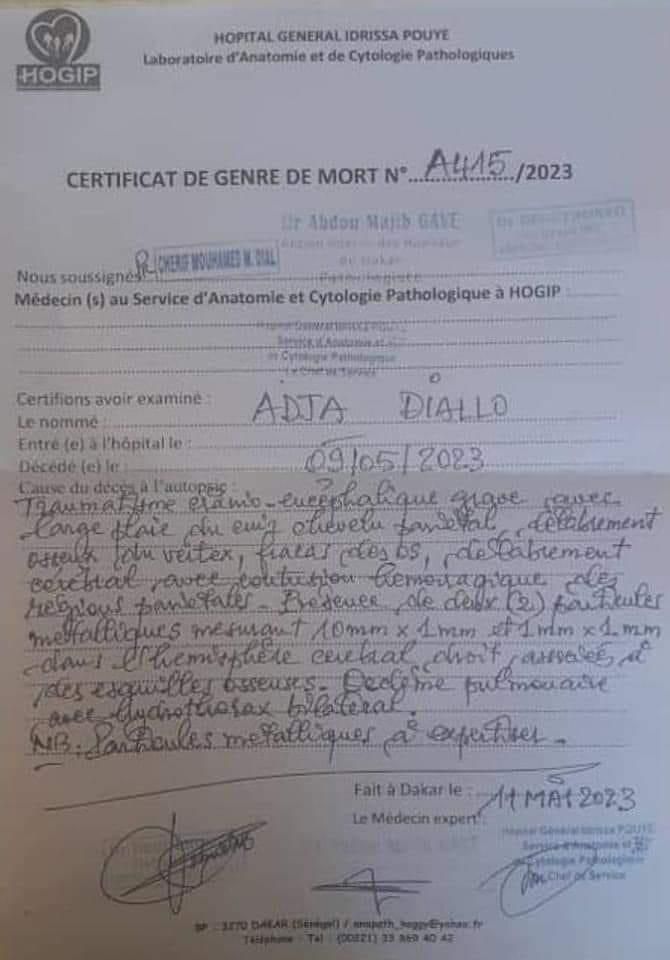 HOGIP
HOPITAL GENERAL IDRISSA POUYE
Laboratoire d'Anatomie et de Cytologie Pathologiques
CERTIFICAT DE GENRE DE MORT N°...A415.../2023
Dr Abdou Majib GAYE
Pathologiste
Nous soussignés CHERIF MOUHAMED M. DIAL
Médecin (s) au Service d'Anatomie et Cytologie Pathologique à HOGIP :
Hôpital Général IDRISSA POUYE
Service d'Anatomie et
de Cytologie Pathologique
Le Chef de Service
Certifions avoir examiné :
Le nommé : ADJA DIALLO
Entré (e) à l'hôpital le :
Décédé (e) le : 09/05/2023
Cause du décès à l'autopsie :
Traumatisme crânio-encéphalique grave avec
large plaie du cuir chevelu pariétal, délabrement
osseux du vertex, fracas des os, délabrement
cérébral avec contusion hémorragique des
régions pariétales. Présence de deux (2) particules
métalliques mesurant 10mm x 1mm et 1mm x 1mm
dans l'hémisphère cérébral droit, associées à
des esquilles osseuses. Oedème pulmonaire
avec hydrothorax bilatéral.
NB: Particules métalliques à expertiser.
Fait à Dakar le : 11 MAI 2023
Le Médecin expert :
Hôpital Général IDRISSA POUYE
Service d'Anatomie et
de Cytologie Pathologique
Le Chef de Service
BP : 3270 DAKAR (Sénégal) / anapath_hoggy@yahoo.fr
Téléphone - Tel : (00221) 33 869 40 42